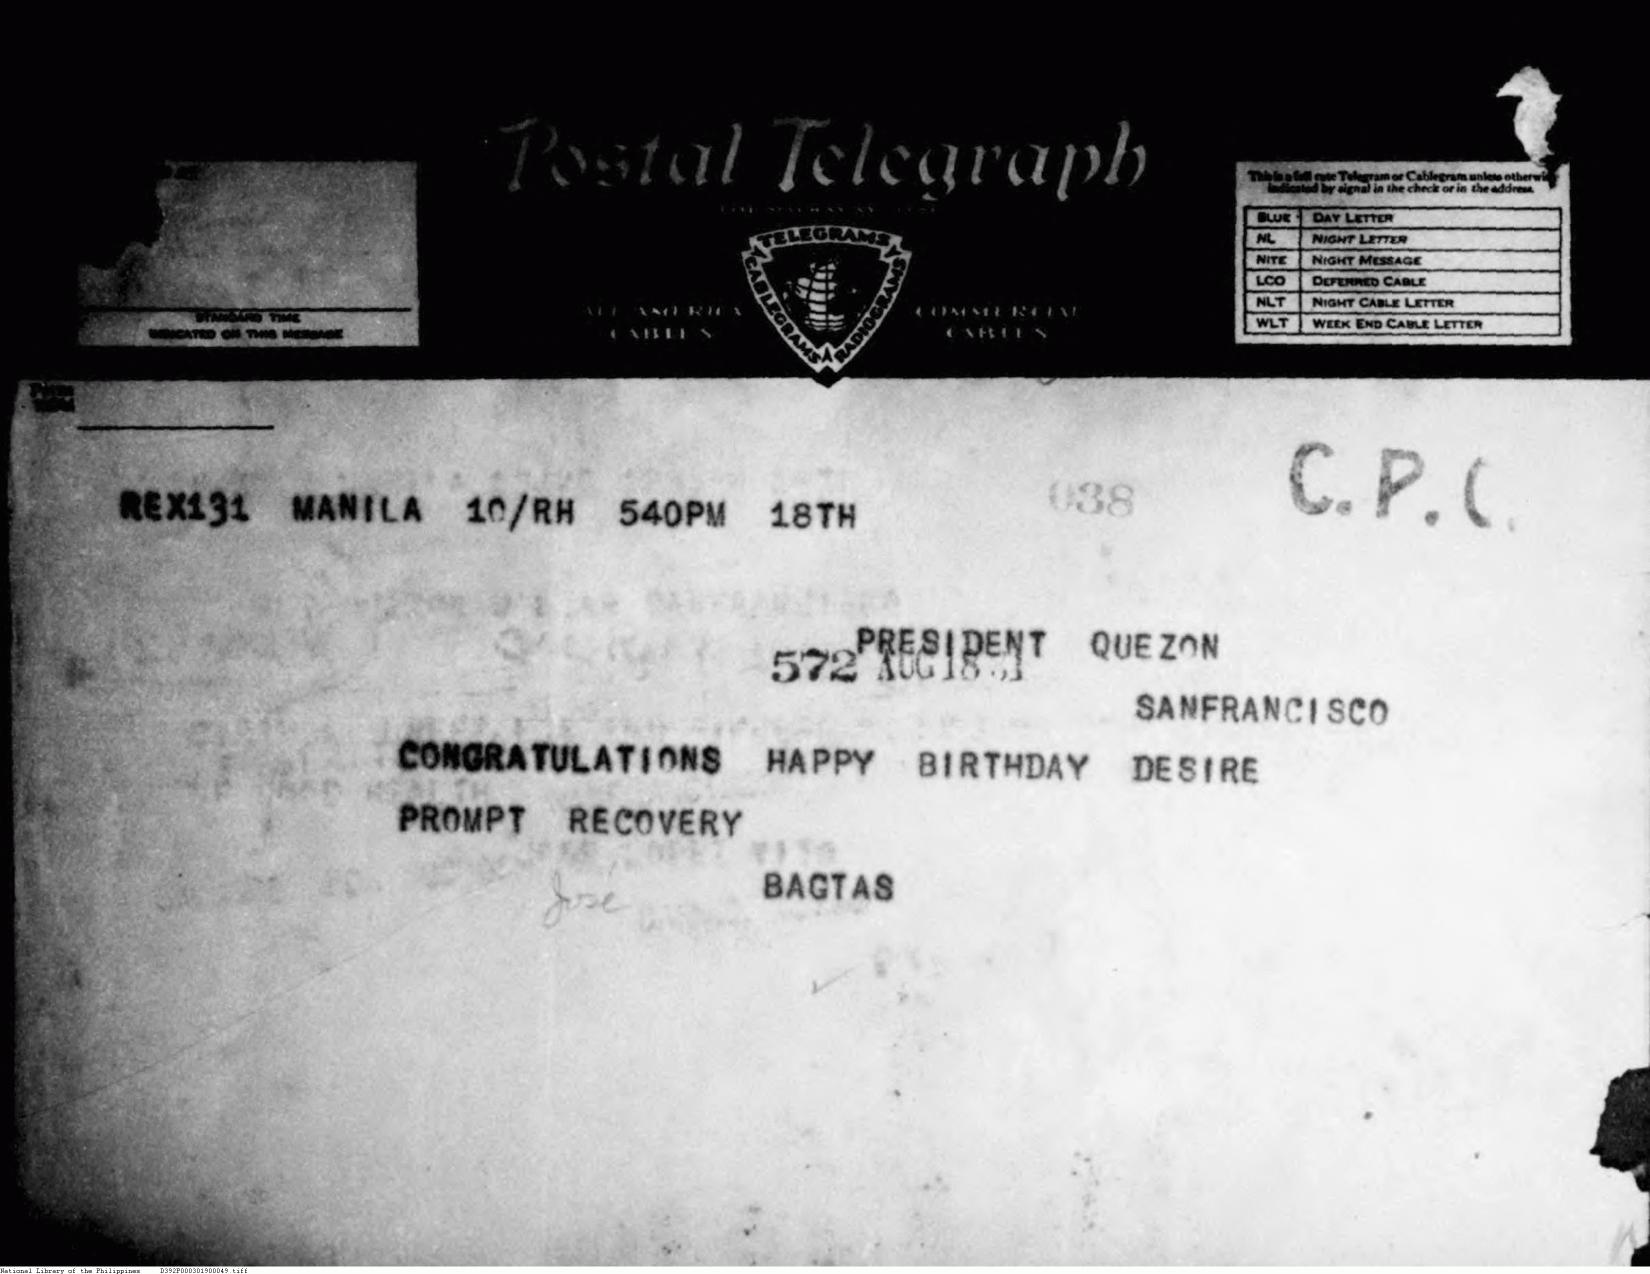 Postal Telegraph
STANDARD TIME
INDICATED ON THIS MESSAGE
TELEGRAMS
CABLEGRAMS
RADIOGRAMS
ALL AMERICA
CABLES
COMMERCIAL
CABLES
This is a full rate Telegram or Cablegram unless otherwise
indicated by signal in the check or in the address.
BLUE DAY LETTER
NL NIGHT LETTER
NITE NIGHT MESSAGE
LCO DEFERRED CABLE
NLT NIGHT CABLE LETTER
WLT WEEK END CABLE LETTER
C.P.C.
038
REX131 MANILA 10/RH 540PM 18TH
PRESIDENT QUEZON
572 AUG 18
SANFRANCISCO
CONGRATULATIONS HAPPY BIRTHDAY DESIRE
PROMPT RECOVERY
José BAGTAS
National Library of the Philippines D392P000301900049.tiff